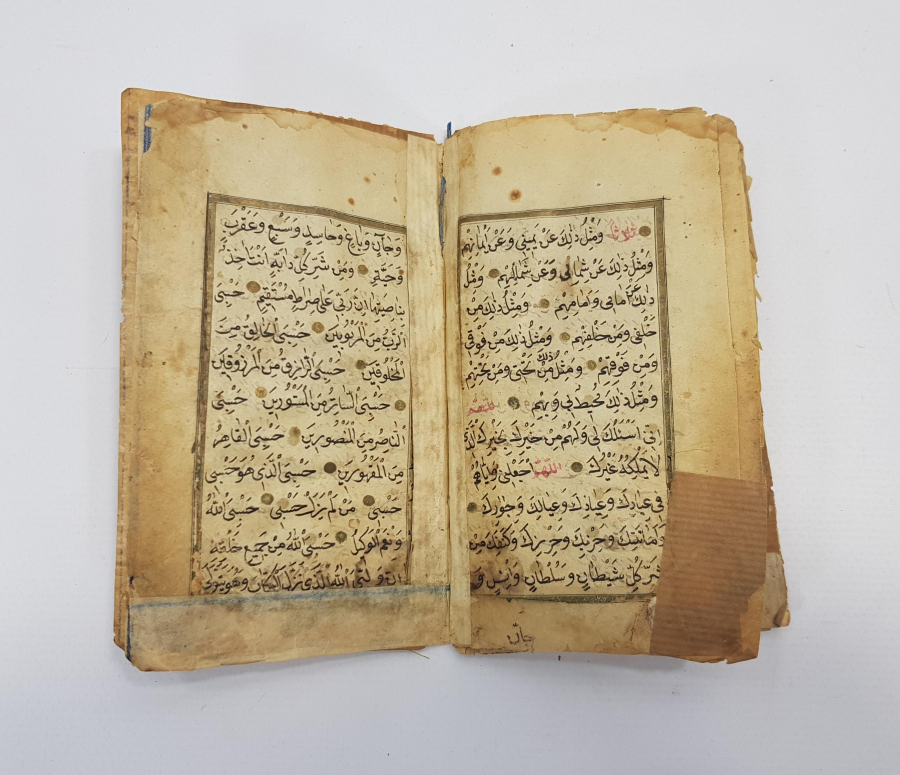 ومثل ذلك عن يميني وعن ايمانهم
ومثل ذلك عن شمالي وعن شمالهم ومثل
ذلك امامي وامامهم ومثل ذلك من
خلفي ومن خلفهم ومثل ذلك من فوقي
ومن فوقهم ومثل ذلك من تحتي ومن تحتهم
ومثل ذلك محيط بي وبهم اللهم
اني اسئلك لي ولهم من خيرك بخيرك الذي
لا يملكه غيرك اللهم اجعلني واياهم
في عبادك وعياذك وعيالك وجوارك
وامانتك وحزبك وحرزك وكنفك من
شر كل شيطان وسلطان وانس و
جان
وجان وباغ وحاسد وسبع وعقرب
وحية ومن شر كل دابة انت اخذ
بناصيتها ان ربي على صراط مستقيم حسبي
الرب من المربوبين حسبي الخالق من
المخلوقين حسبي الرازق من المرزوقين
حسبي الساتر من المستورين حسبي
الناصر من المنصورين حسبي القاهر
من المقهورين حسبي الذي هو حسبي
حسبي من لم يزل حسبي حسبي الله
ونعم الوكيل حسبي الله من جميع خلقه
ان وليي الله الذي نزل الكتاب وهو يتولى